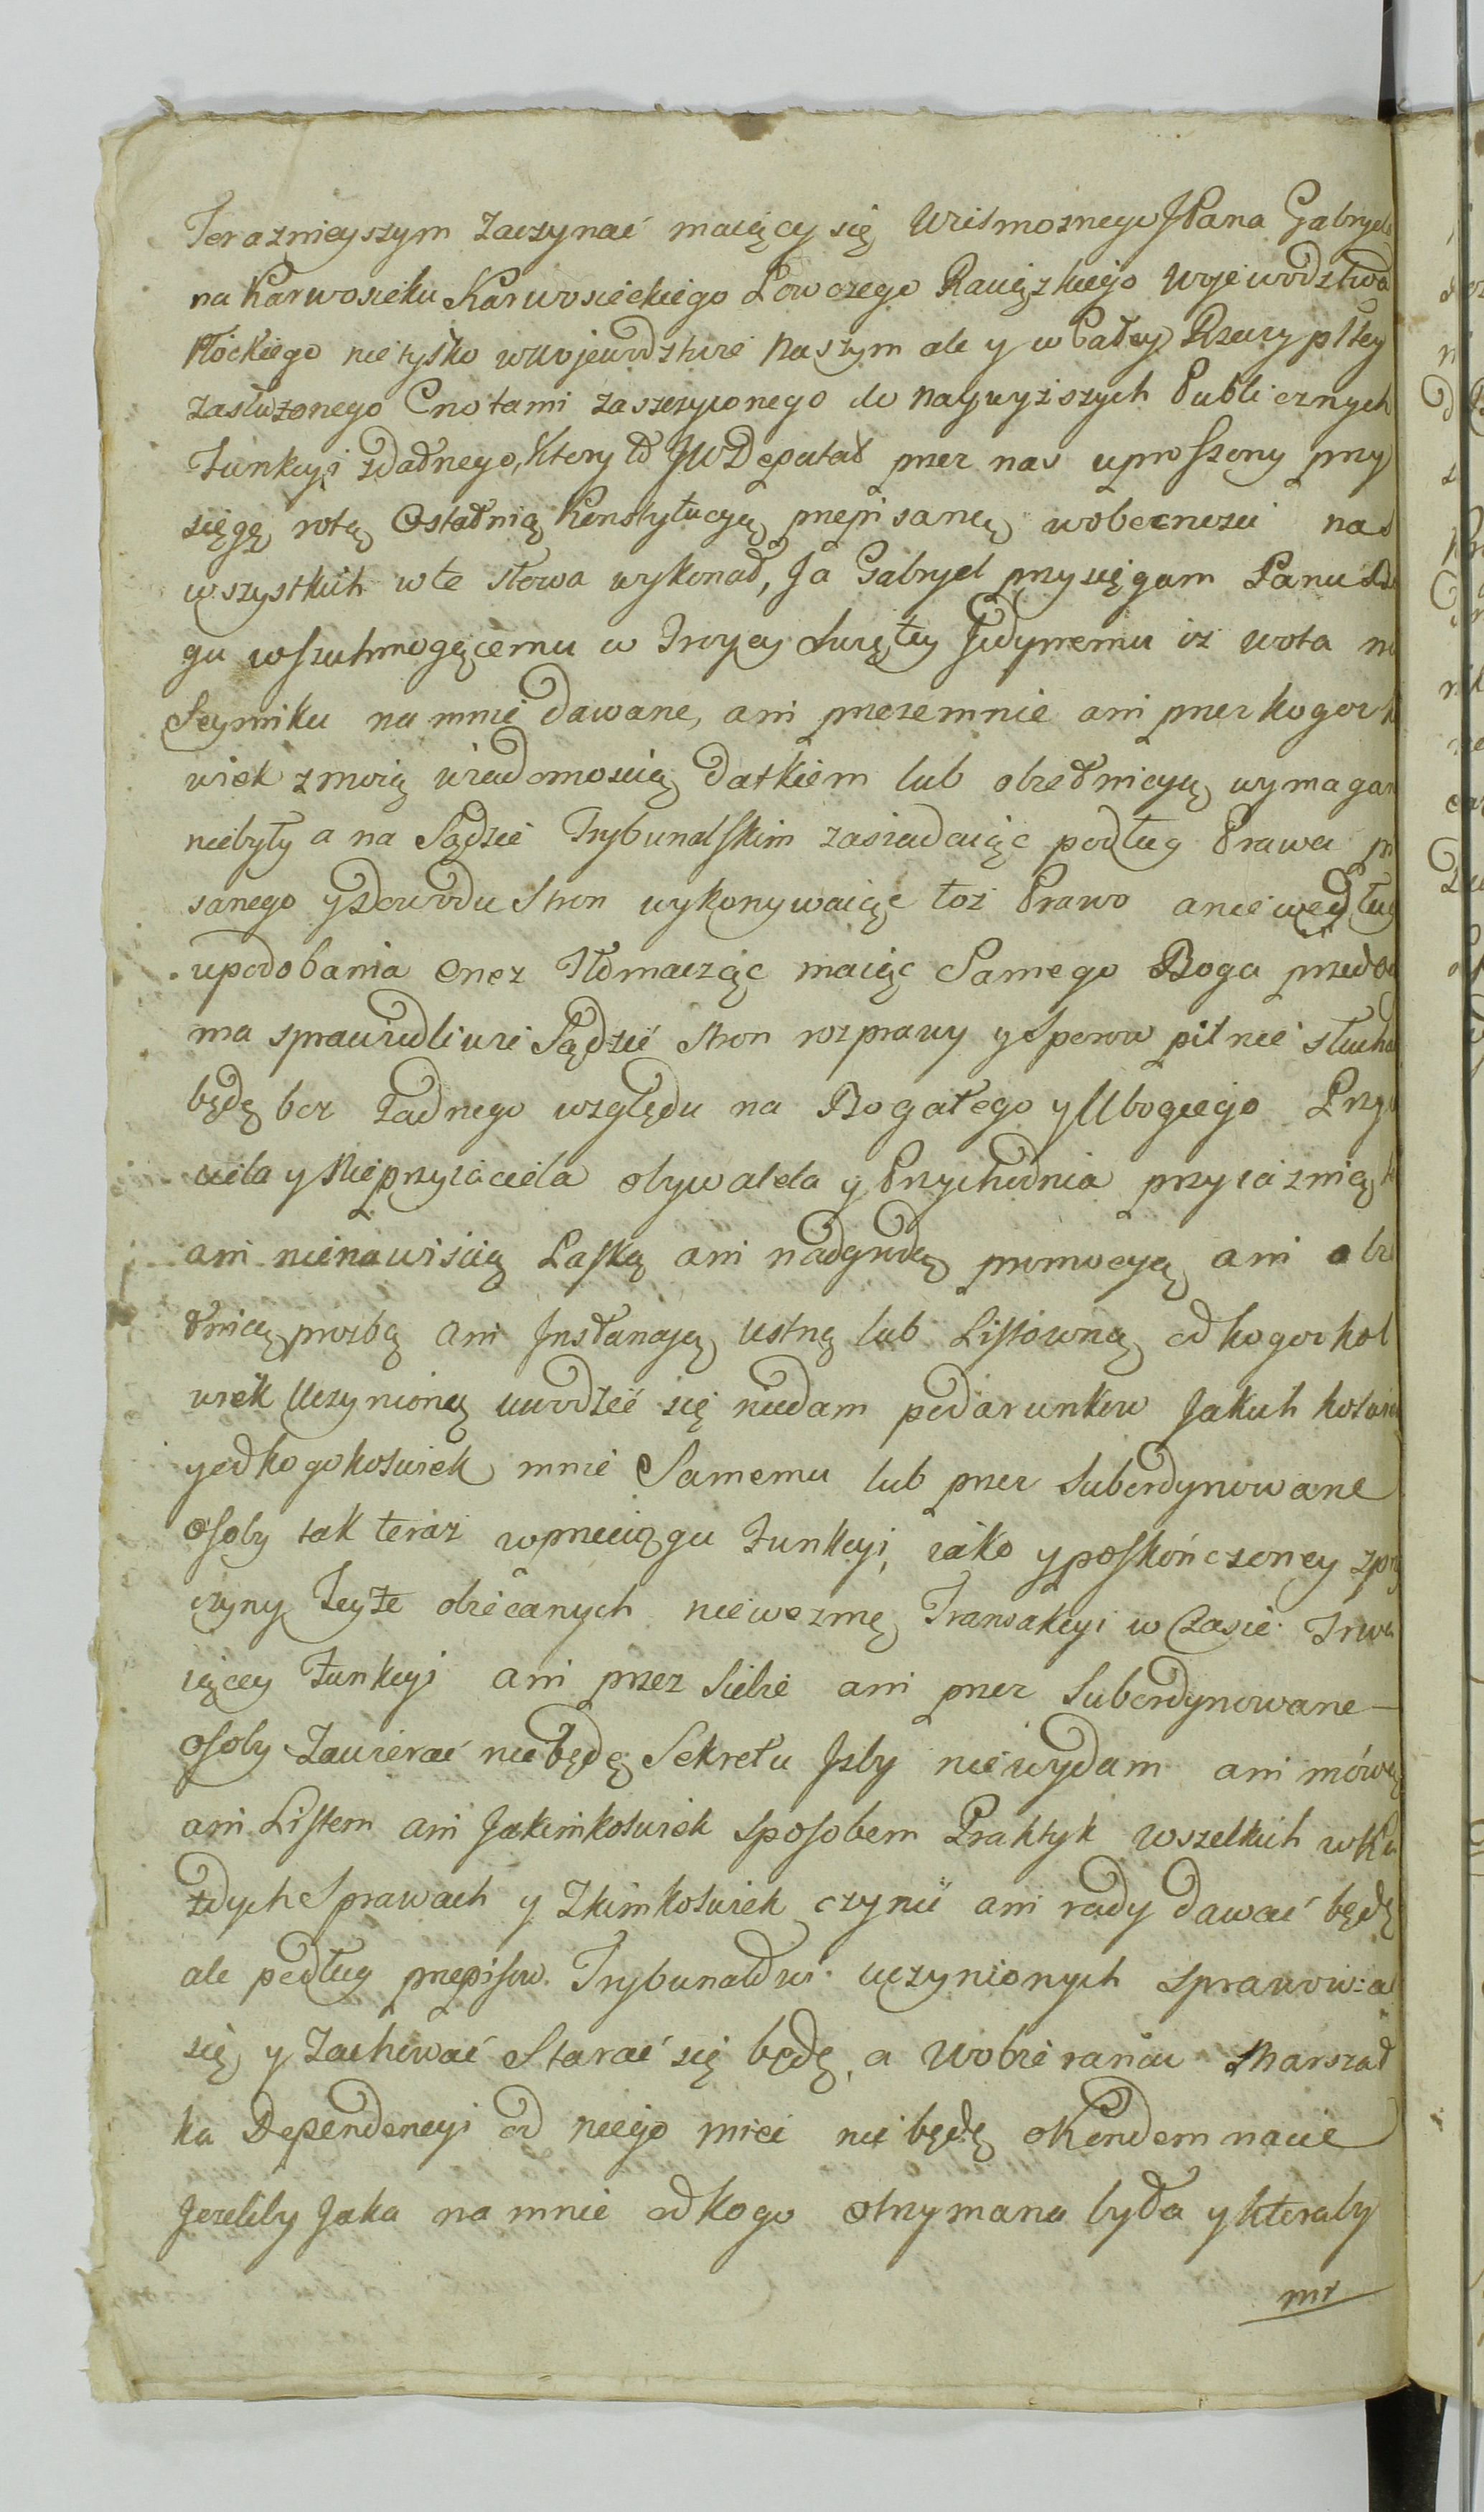 Teraznieyszym Zaczynać maiący się Wielmoznego JPana Gabryela
na Karwosieku Karwosieckiego Łowczego Raciązkiego Wojewodztwa
Płockiego nie tylko w Wojewodztwie Naszym ale y w Całey Rzeczypltey
zasłużonego Cnotami zaszczyconego do naywyższych Publicznych
Funkcyi zdatnego, Ktory to JWDeputat przez nas uproszony przy
sięgę rotą Ostatnią Konstytucyą przepisaną wobecnosci nas
wszystkich w te słowa wykonał, Ja Gabryel przysięgam Panu Bo
gu wszechmogącemu w Troycy Swiętey Jedynemu iz wota na
Seymiku na mnie dawane, ani przezemnie ani przez kogozkol
wiek z moią wiadomoscią datkiem lub obietnicyą wymagan
niebyły a na Sądzie Trybunalskim zasiadaiąc podług Prawa pi
sanego y Dowodu Stron wykonywaiąc toż Prawo a nie według
upodobania Onez Tłomacząc maiąc Samego Boga przed oc
ma sprawiedliwie Sądzić stron rozprawy y Sporow pilnie słucha
będę bez żadnego względu na Bogatego y Ubogiego Przy
ciela y Nieprzyiaciela obywatela y Przychodnia przyiaznią
ani nienawiscią Łaską ani nadgrodą promocyą ani obie
tnicą prozbą ani Jnstancyą Ustną lub Listowną od kogozkol
wiek Uczynioną uwodzić się niedam podarunkow Jakich kolwie
y od kogokolwiek mnie Samemu lub przez Subordynowane
osoby tak teraz w przeciągu Funkcyi, iako y poskończoney z prz
czyny Teyże obiecanych niewezmę Transakcyi w Czasie Trwa
iącey Funkcyi ani przez Siebie ani przez Subordynowane —
osoby Zawierać niebędę Sekretu Jzby niewydam ani mową
ani Listem ani Jakimkolwiek Sposobem Praktyk wszelkich w Ka
żdych Sprawach y Zkimkolwiek czynić ani rady dawać będę
ale podług przepisow Trybunałowi uczynionych sprawow: a
się y Zachować Starać się będę, a Wobieraniu Marszał
ka Dependencyi od niego mieć nie będę o Kondemnacie
Jezeliby Jaka na mnie od kogo otrzymana była y ktoraby
mr